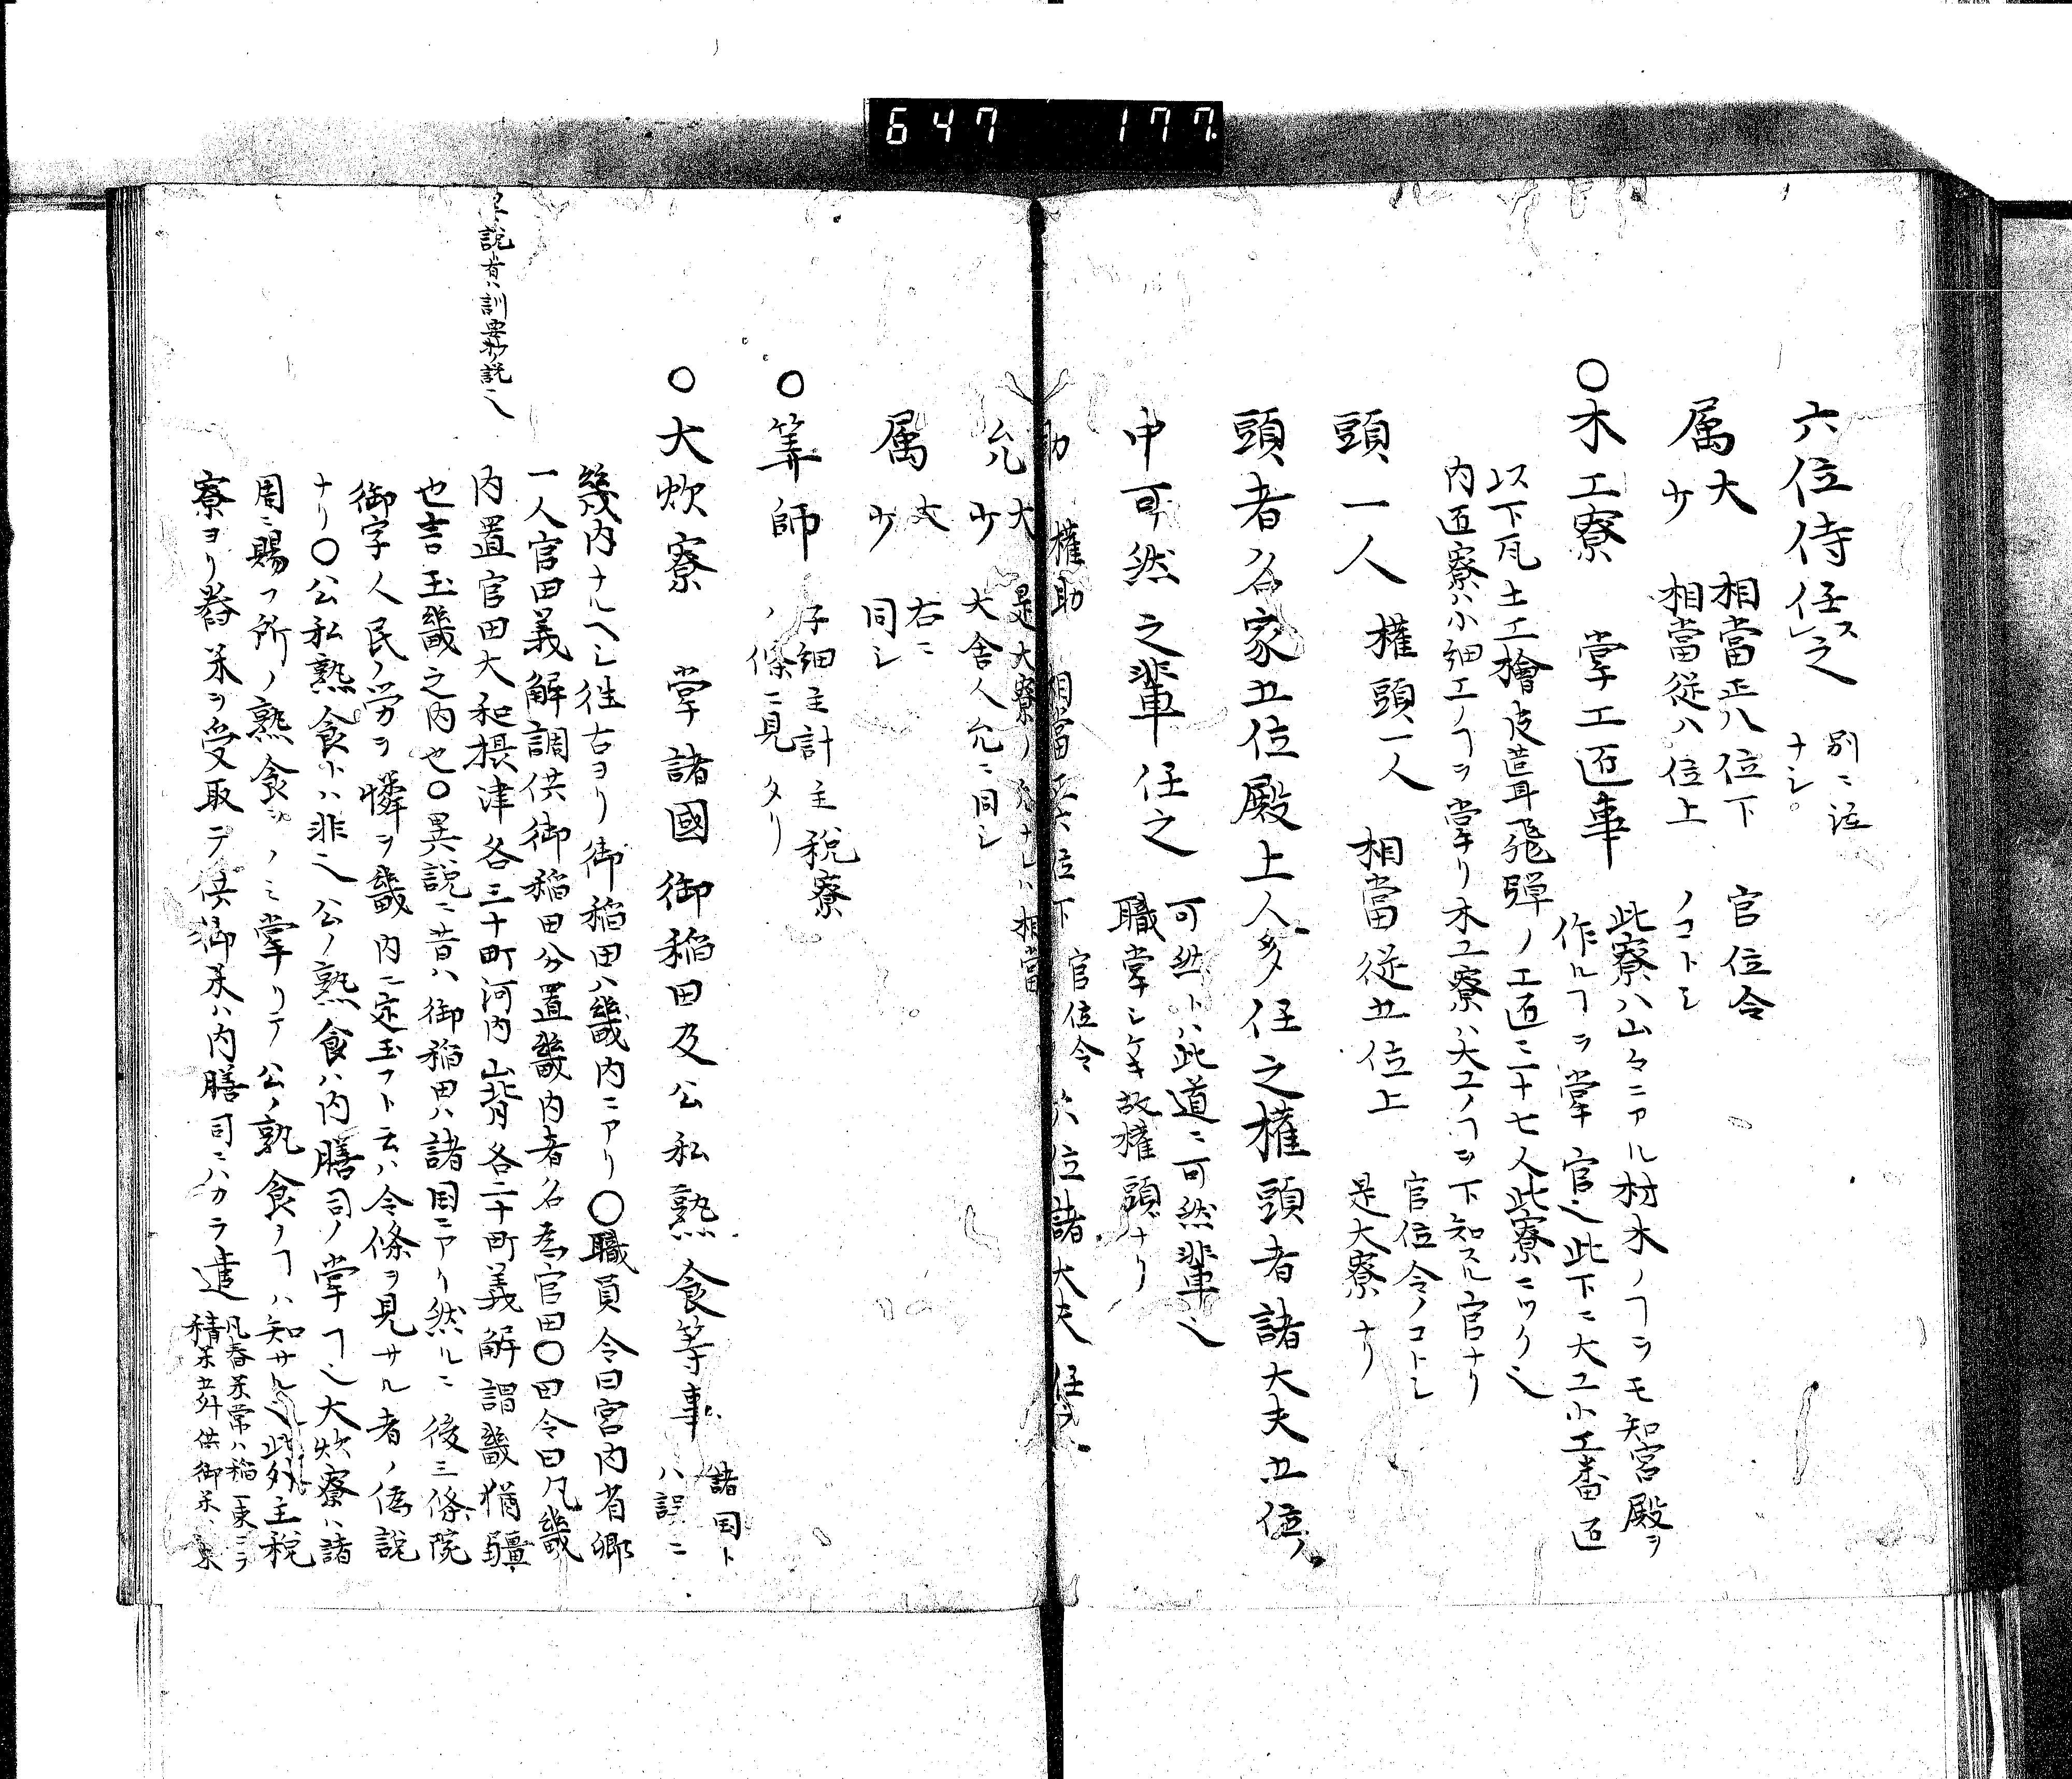 647 177
六位侍任レ之ス 別ニ註
ナシ。
属大 相當正八位下 官位令
少 相當従八位上 ノコトシ
○木工寮 掌工匠事 此寮ハ山々ニアル材木ノヿヲモ知宮殿ヲ
作ルヿヲ掌官也此下ニ大工小工番匠
以下瓦土工檜皮葺飛彈ノ工匠三十七人此寮ニツク也
内匠寮ハ小細工ノヿヲ掌リ木工寮ハ大工ノヿヲ下知スル官ナリ
頭一人 權頭一人 相當従五位上 官位令ノコトシ
是大寮ナリ
頭者名家五位殿上人多任之權頭者諸大夫五位ノ
中可然之輩任之 可然トハ此道ニ可然輩也
職掌シケキ故權頭ナリ
助 權助 相當正六位下 官位令 六位諸大夫任之
允大 是大寮ノ允ナレハ相當
少 大舎人允ニ同シ
属大 右ニ
少 同シ
○筭師 子細主計主税寮
ノ條ニ見タリ
○大炊寮 掌諸國御稲田及公私熟食等事 諸国ト
ハ誤ニ
畿内ナルヘシ徃古ヨリ御稲田ハ畿内ニアリ○職員令曰宮内省卿
一人官田義解調供御稲田分置畿内者名為官田○田令曰凡畿
内置官田大和摂津各三十町河内山背各二十町義解謂畿猶疆
也言王畿之内也○異説ニ昔ハ御稲田ハ諸国ニアリ然ルニ後三條院
御宇人民ノ労ヲ憐ヲ畿内ニ定玉フト云ハ令條ヲ見サル者ノ偽説
ナリ○公私熟食トハ非也公ノ熟食ハ内膳司ノ掌ヿ也大炊寮ハ諸
周ニ賜フ所ノ熟食ヲノミ掌リテ公ノ熟食ノヿハ知サル也此外主税
寮ヨリ舂米ヲ受取テ供御米ハ内膳司ニハカラ遣 凡舂米常ハ稲一束ニ
精米五升供御米
異説者ハ訓要抄説也